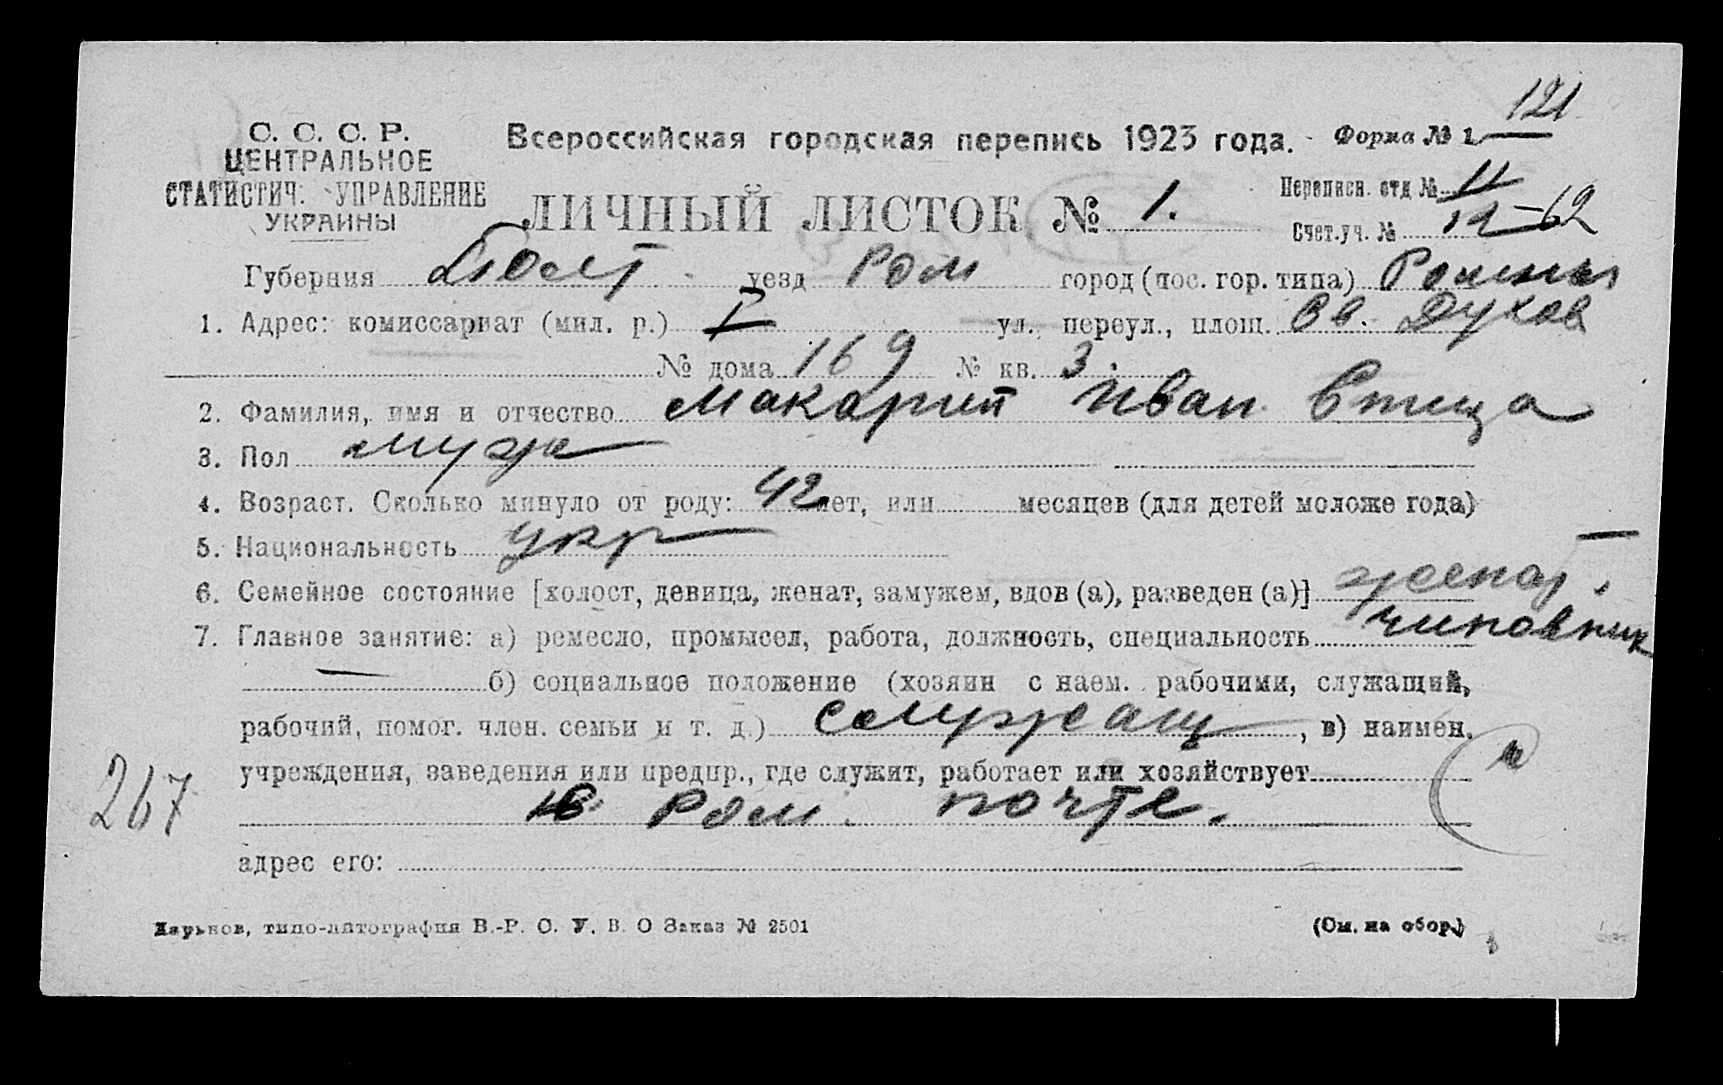 121
С. С. С. Р.
ЦЕНТРАЛЬНОЕ
СТАТИСТИЧ. УПРАВЛЕНИЕ
УКРАИНЫ
Всероссийская городская перепись 1923 года. Форма № 1.
ЛИЧНЫЙ ЛИСТОК № 1.
Переписн. отд № 11
Счет. уч. № 12-62
Губерния Полт. уезд Ром город (пос. гор. типа) Ромны
1. Адрес: комиссариат (мил. р.) I ул., переул., площ. Св. Духов
№ дома 169 № кв. 3.
2. Фамилия, имя и отчество Макарий Иван
3. Пол муж
4. Возраст. Сколько минуло от роду: 42 лет, или месяцев (для детей моложе года)
5. Национальность укр
6. Семейное состояние [холост, девица, женат, замужем, вдов (а), разведен (а)] женат.
7. Главное занятие: а) ремесло, промысел, работа, должность, специальность чиновник
б) социальное положение (хозяин с наем. рабочими, служащий,
рабочий, помог. член. семьи и т. д.) служащ, в) наимен.
учреждения, заведения или предпр., где служит, работает или хозяйствует
в Ром. почте.
267
адрес его:
Харьков, типо-литография В.-Р. С. У. В. О Заказ № 2501
(См. на обор.)